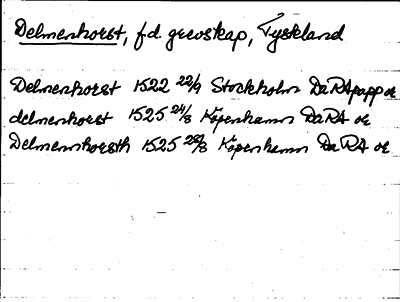 Delmenhorst, f.d. grevskap, Tyskland
Delmenhorst 1522 22/9 Stockholm DaRApapp or
delmenhorst 1525 24/8 Köpenhamn DaRA or
Delmennhorsth 1525 28/8 Köpenhamn DaRA or